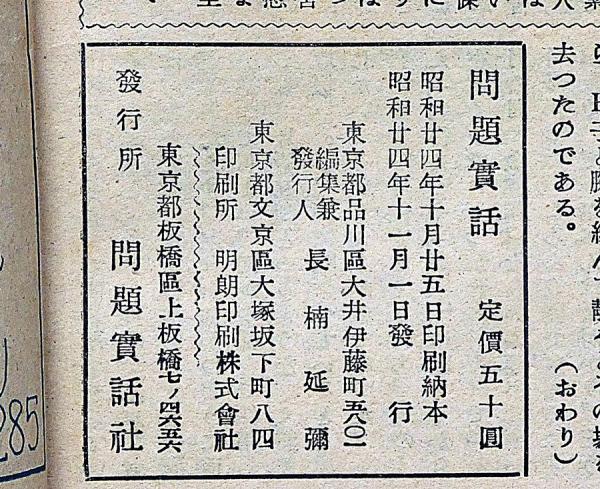 去つたのである。
(おわり)
問題實話 定價五十圓
昭和廿四年十月廿五日印刷納本
昭和廿四年十一月一日發行
東京都品川區大井伊藤町五八〇一
編集兼
發行人 長楠延彌
東京都文京區大塚坂下町八四
印刷所 明朗印刷株式會社
東京都板橋區上板橋七ノ四六五六
發行所 問題實話社
285